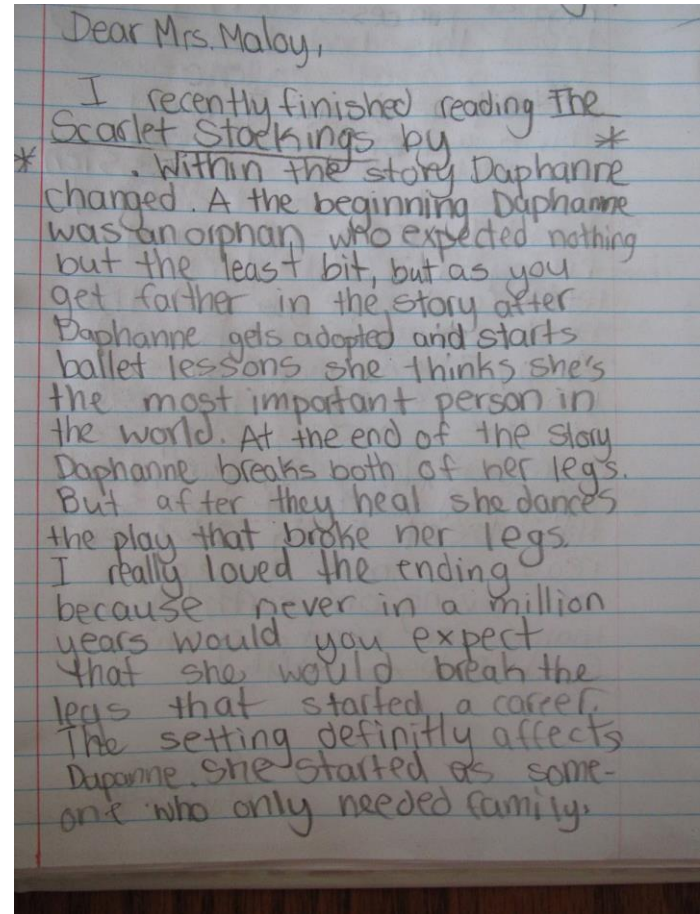 Dear Mrs. Maloy,
I recently finished reading The
Scarlet Stockings by *
* . Within the story Daphanne
changed. A the beginning Daphanne
was an orphan who expected nothing
but the least bit, but as you
get farther in the story after
Daphanne gets adopted and starts
ballet lessons she thinks she's
the most important person in
the world. At the end of the story
Daphanne breaks both of her legs.
But after they heal she dances
the play that broke her legs.
I really loved the ending
because never in a million
years would you expect
that she would break the
legs that started a career.
The setting definitly affects
Dapanne. She started as some-
one who only needed family.